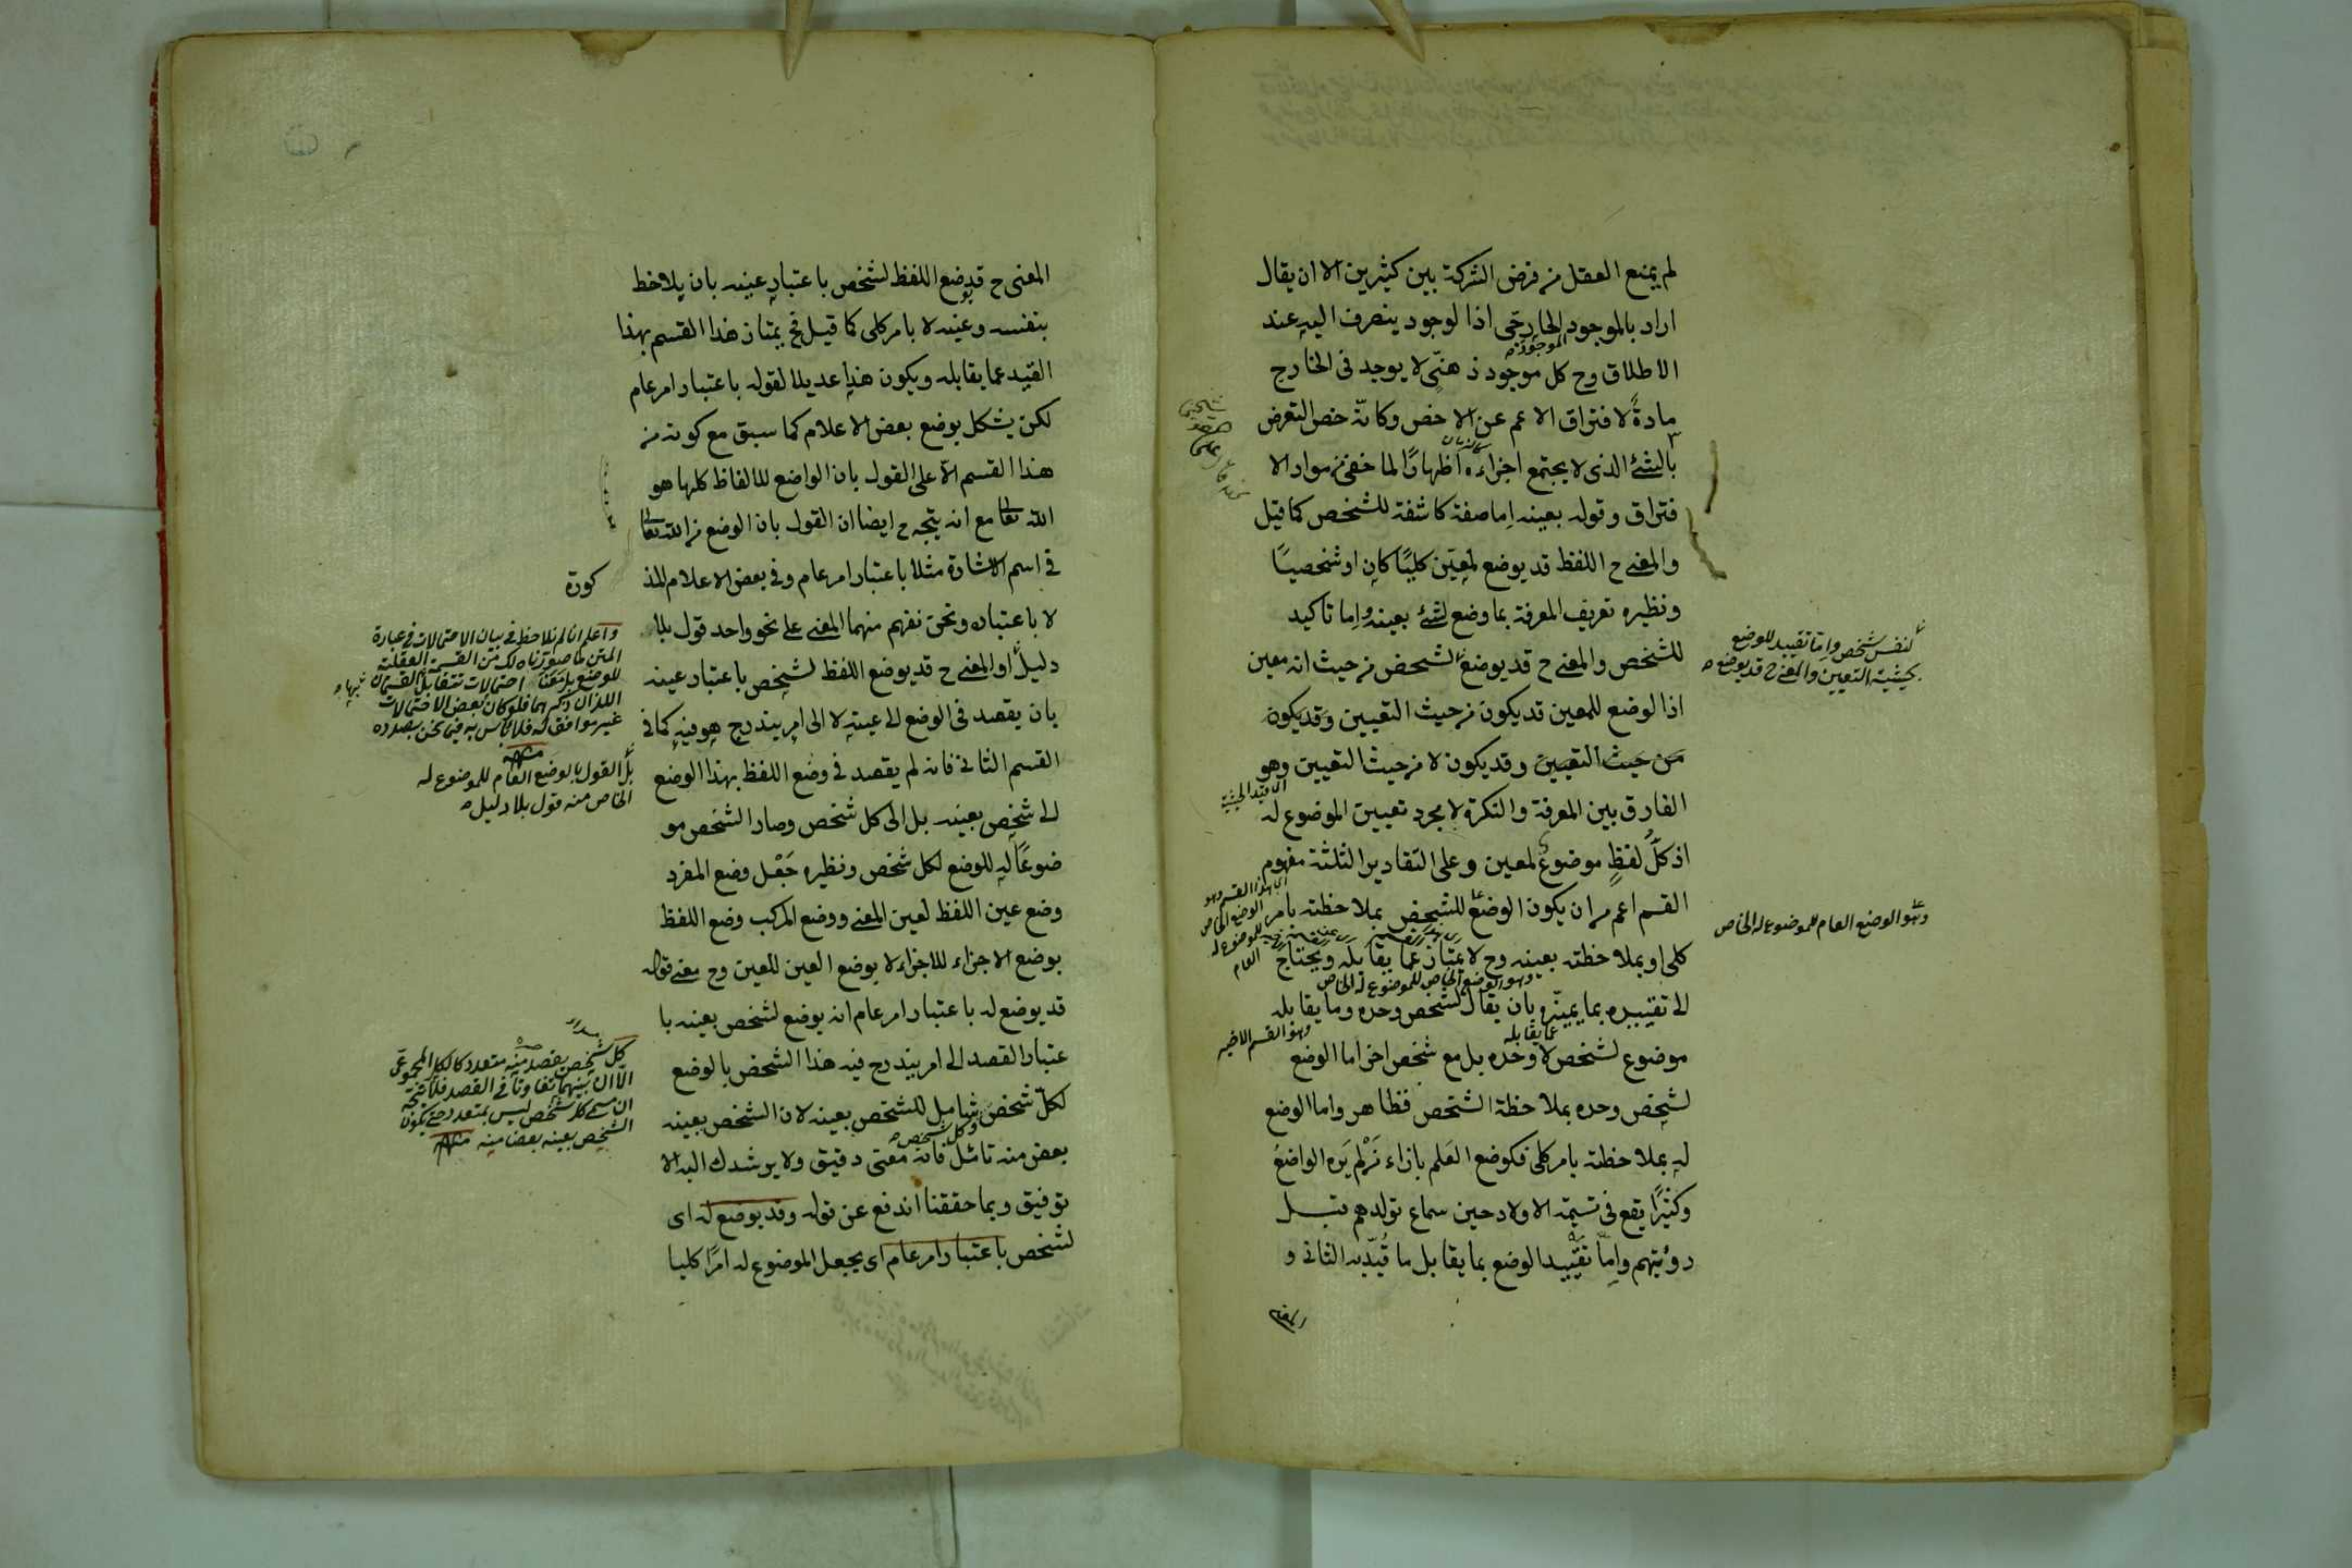 لم يمنع العقل من فرض الشركة بين كثيرين الا ان يقال
اراد بالموجود الخارجى اذا لوجود ينصرف اليه عند
الاطلاق وح كل موجود ذهنى لا يوجد فى الخارج
مادةً لافتراق الاعم عن الاخص وكانّه خص التعرض
بالشئ الذى لا يجتمع اجزاءه اظهارًا لما خفى من مواد الا
فتراق وقوله بعينه اِما صفة كاشفة للشخص كما قيل
والمعنى ح اللفظ قد يوضع لمعيّن كليًا كان او شخصيًا
ونظيره تعريف المعرفة بما وضع لشئ بعينه واِما تاكيد
للشخص والمعنى ح قد يوضع لشخص من حيث انه معين
اذا لوضع للمعين قد يكون من حيث التعيين وقد يكون
من حيث التعيين وقد يكون لا من حيث التعيين وهو
الفارق بين المعرفة والنكرة لا مجرد تعيين الموضوع له
اذ كلّ لفظٍ موضوع لمعين وعلى التقادير الثلثة مفهوم
القسم اعم من ان يكون الوضع للشخص بملاحظته بامر
كلى او بملاحظته بعينه وح لا يمتاز عما يقابله ويحتاج
الى تقييده بما يميّزه بان يقال لشخص وحده وما يقابله
موضوع لشخص لا وحده بل مع شخص اخر اما الوضع
لشخص وحده بملاحظة الشخص فظاهر واما الوضع
له بملاحظته بامر كلى فكوضع العَلم بازاء مَن لم يَره الواضعُ
وكثيرًا يقع فى تسميته الاولاد حين سماع تولدهم قبل
رؤيتهم واِمّا تقييد الوضع بما يقابل ما قُيّد به الثانى و
لنفس شخص واِمّا تقييد للوضع
بحيثية التعيين والمعنى ح قد يوضع
وهو الوضع العام للموضوع له الخاص
وهو الوضع الخاص للموضوع له الخاص
عما يقابله
وهو القسم الاخير
المعنى ح قد يوضع اللفظ لشخص باعتبار عينه بان يلاحظ
بنفسه وعينه لا بامر كلى كما قيل فح يمتاز هذا القسم بهذا
القيد عما يقابله ويكون هذا عديلا لقوله باعتبار امر عام
لكن يشكل بوضع بعض الاعلام كما سبق مع كونه من
هذا القسم الاّ على القول بان الواضع للالفاظ كلها هو
الله تعالى مع انه يتجه ح ايضا ان القول بان الوضع من الله تعالى
فى اسم الاشارة مثلا باعتبار امر عام وفى بعض الاعلام المذ
كورة
لا باعتباره ونحن نفهم منهما المعنى على نحو واحد قول بلا
دليل او المعنى ح قد يوضع اللفظ لشخص باعتبار عينه
بان يقصد فى الوضع الى عينه لا الى امر يندرج هو فيه كما فى
القسم الثانى فانه لم يقصد فى وضع اللفظ بهذا الوضع
الى شخص بعينه بل الى كل شخص وصار الشخص مو
ضوعًا له للوضع لكل شخص ونظيره جَعْل وضع المفرد
وضع عين اللفظ لعين المعنى ووضع المركب وضع اللفظ
بوضع الاجزاء للاجزاء لا بوضع العين للعين وح معنى قوله
قد يوضع له باعتبار امر عام انه يوضع لشخص بعينه با
عتبار القصد الى امر يندرج فيه هذا الشخص بالوضع
لكلّ شخص شامل للشخص بعينه لان الشخص بعينه
بعض منه تامّل فانه معنى دقيق ولا يرشدك اليه الا
توفيق وبما حققنا اندفع عن قوله وقد يوضع له اى
لشخص باعتبار امر عام اى يجعل الموضوع له امرًا كليا
واعلم انا لم نلاحظ فى بيان الاحتمالات فى عبارة
المتن ما صورناه لك من القسمة العقلية
اللذان ذكرهما فلو كان بعض الاحتمالات
غير موافق له فلا باس به فيما نحن بصدده
بل القول بالوضع العام للموضوع له
الخاص منه قول بلا دليل
الاّ ان بينهما تفاوتا فى القصد
الشخص بعينه بعضا منه